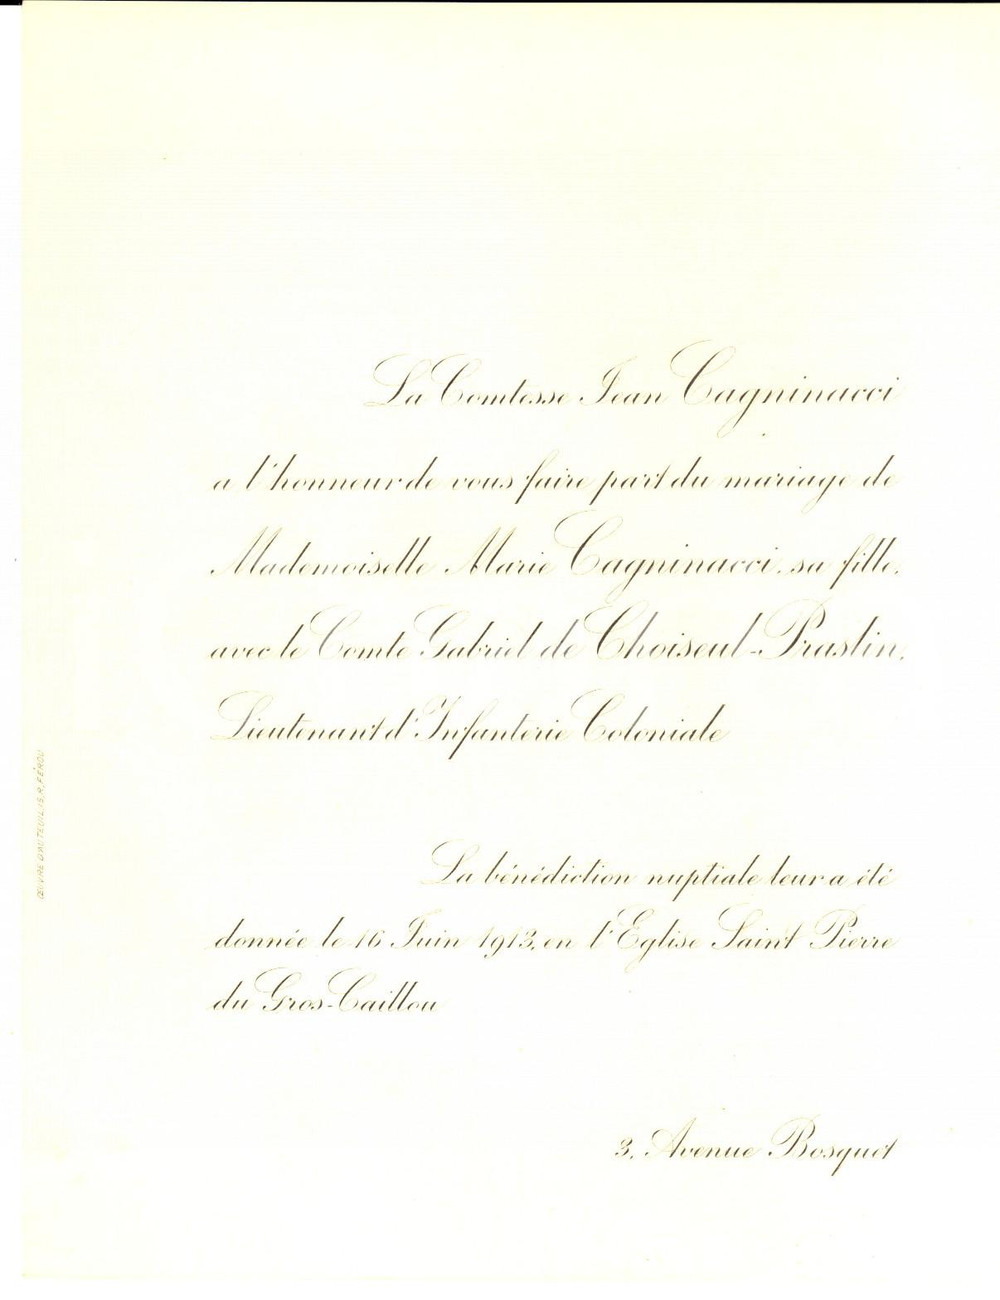 La Comtesse Jean Cagninacci
a l'honneur de vous faire part du mariage de
Mademoiselle Marie Cagninacci, sa fille,
avec le Comte Gabriel de Choiseul-Praslin,
Lieutenant d'Infanterie Coloniale
La bénédiction nuptiale leur a été
donnée le 16 Juin 1913, en l'Eglise Saint Pierre
du Gros-Caillou
3, Avenue Bosquet
ŒUVRE D'AUTEUIL, 15, R. FÉROU